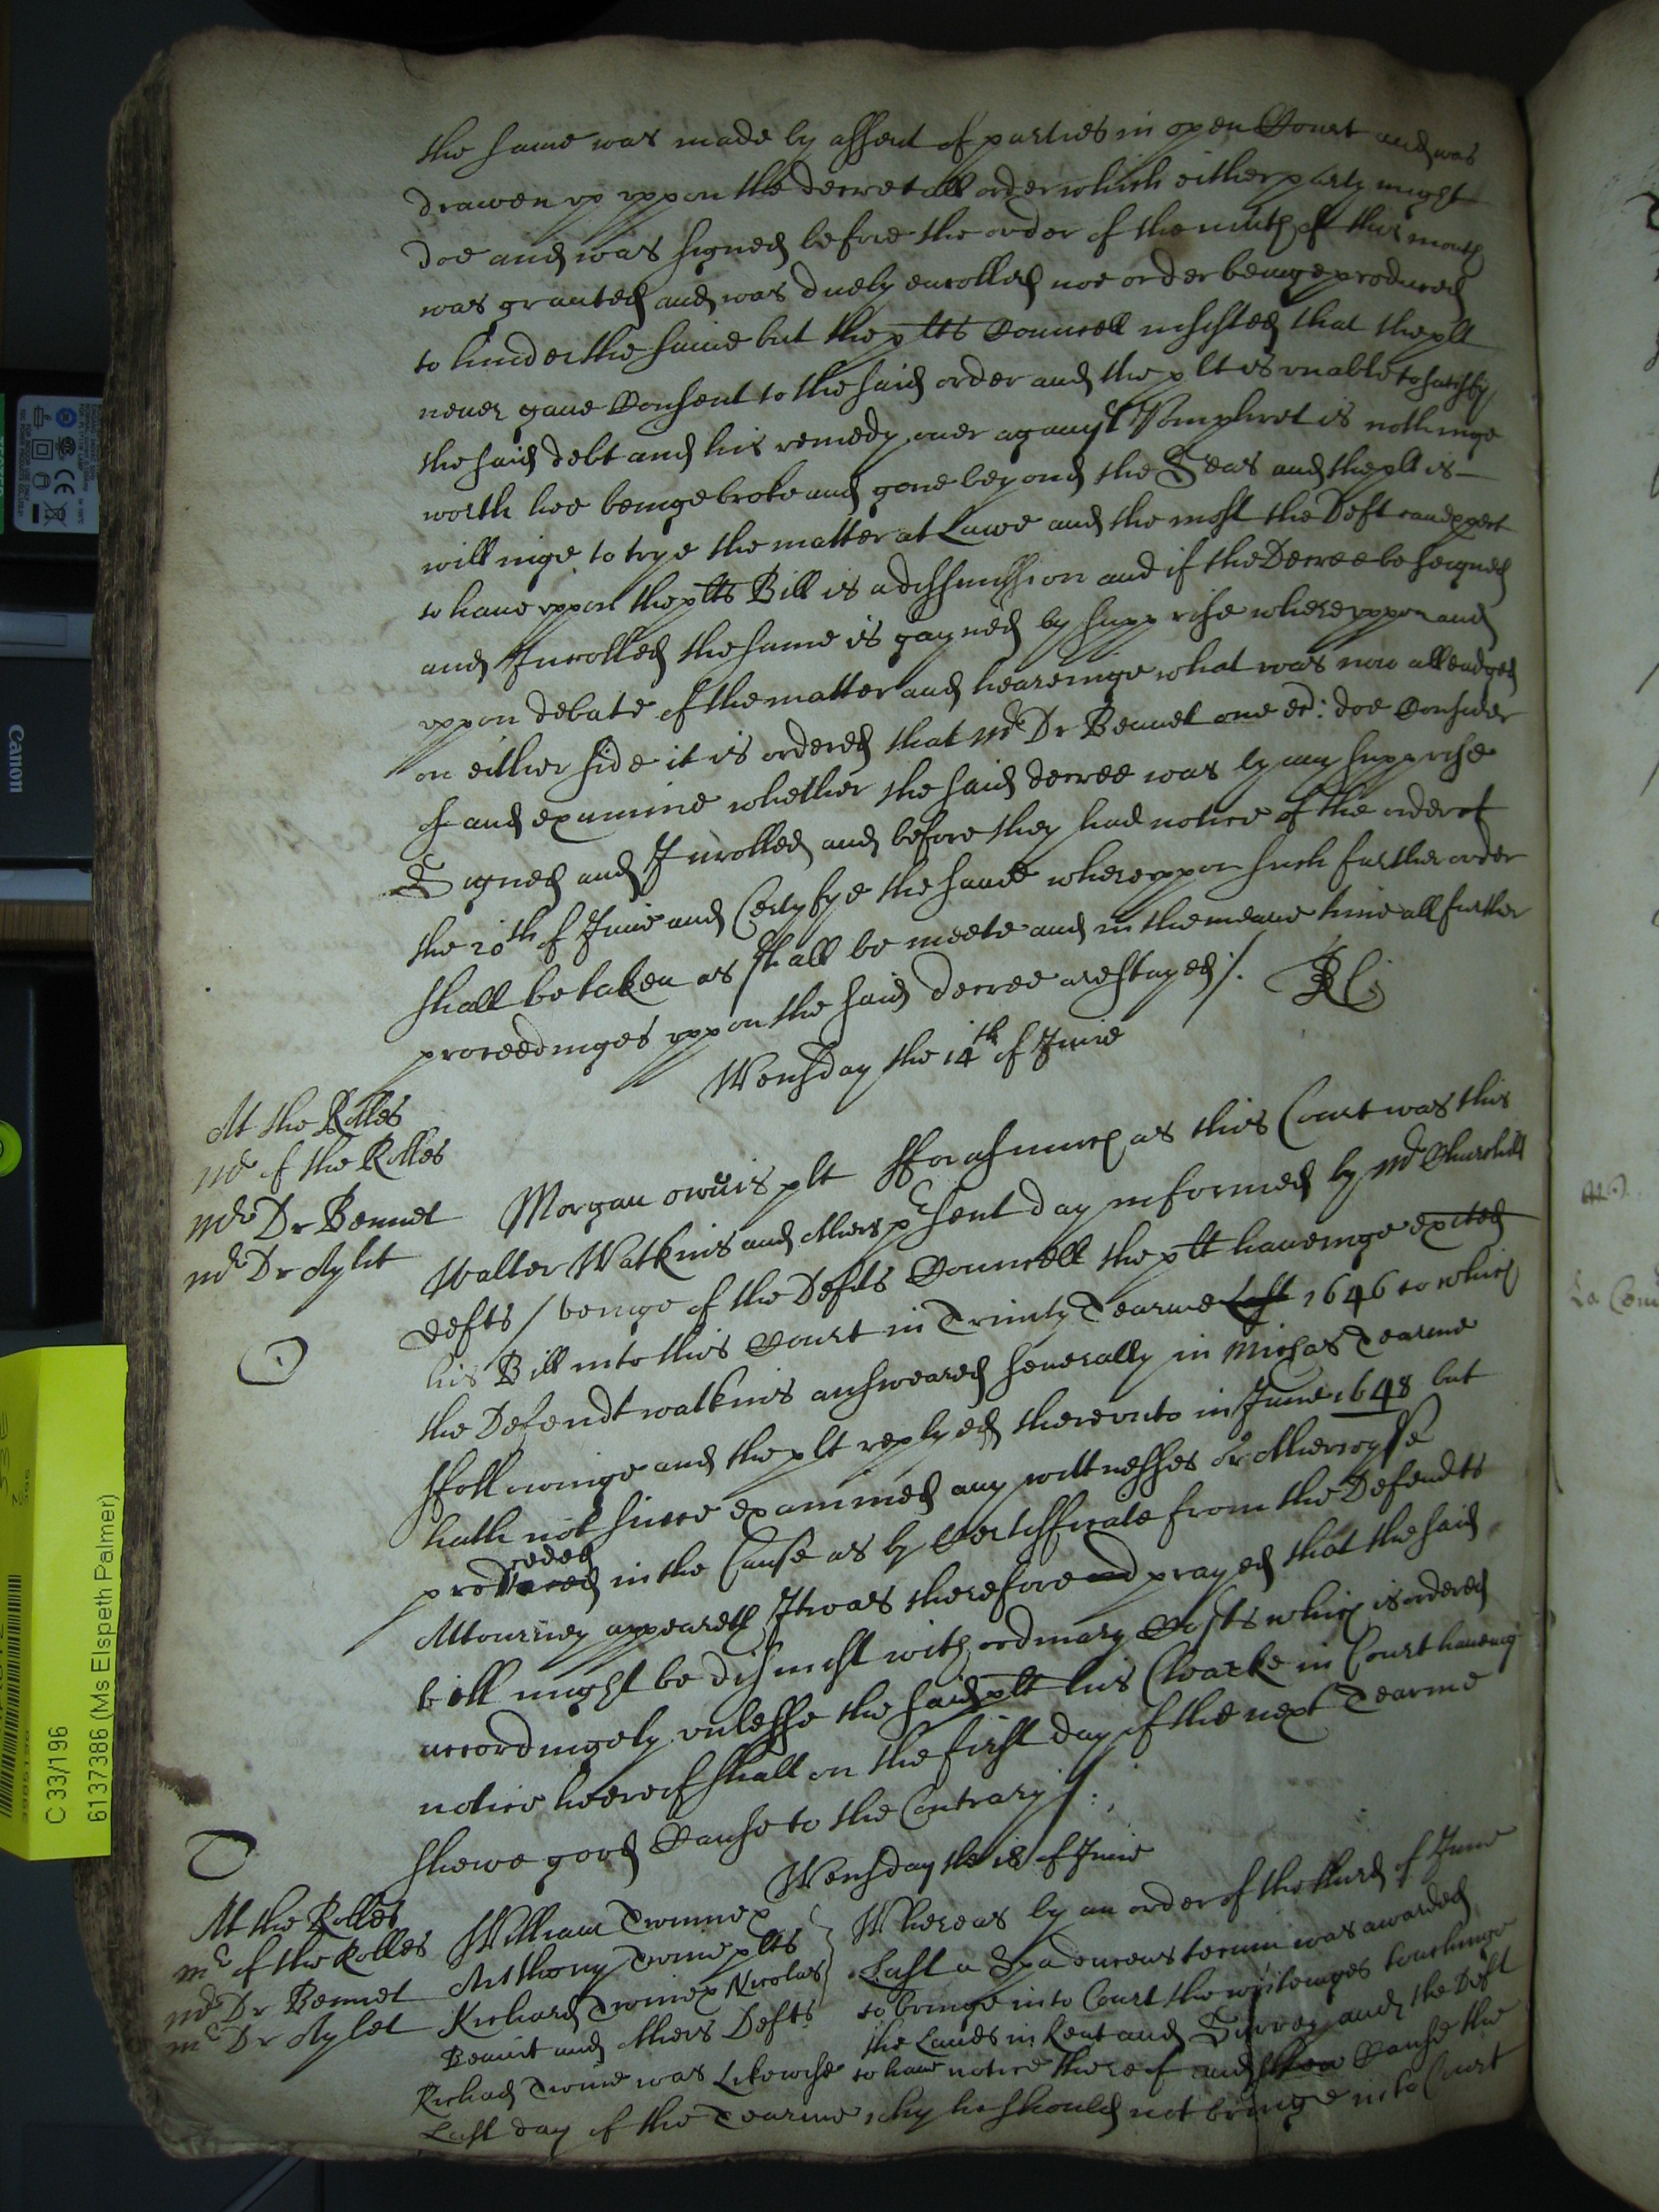 the same was made by assent of parties in open Court and was
drawen vp vppon the decretall order which either party might
doe and was signed before the order of the ninth of this month
was graunted and was duely enrolled noe order beinge produced
to hinder the same but the plts Councell insisted that the plt
neuer gaue Consent to the said order and the plt is vnable to satisfy
the said debt and his remedy ouer against Pomphret is nothinge
worth hee beinge broke and gone beyond the Seas and the plt is
willinge to trye the matter at Lawe and the most the Deft can expect
to haue vppon the plts Bill is a dissmission and if the Decree be seigned
and Inrolled the same is gayned by supprise wherevppon and
vppon debate of the matter and heareinge what was now alleadged
on either side it is ordered that Mr Dr Bennet one &c: doe Consider
of and examine whether the said decree was by any supprise
Signed and Inrolled and before they had notice of the order of
the 10th of June and Certyfye the same wherevppon such further order
shall be taken as shall be meete and in the meane time all further
proceedinges vppon the said decree are stayed /.
Wensday the 14th of June
At the Rolles
Mr of the Rolles
Mr Dr Bennet
Mr Dr Aylet
Morgan Owins plt Fforasmuch as this Court was this
Walter Watkins and others present day informed by Mr Churchill
Defts / beinge of the Defts Councell the plt haueinge exited
his Bill into this Court in Trinity Tearme Last 1646 to which
the Defendt watkins answeared seuerally in Michas Tearme
Ffollowinge and the plt replyed therevnto in June 1648 but
hath not since examined any wittnesses or otherwyse
proceeded in the Cause as by Certifficate from the Defendts
Attourney appeareth It was therefore and prayed that the said
bill might be dismist with ordinary Costs which is ordered
accordingely vnlesse the said plt his Clearke in Court haueing
notice heereof shall on the first day of the next Tearme
shewe good Cause to the Contrary /.
Wensday the 14 of June
At the Rolles
Mr of the Rolles
Mr Dr Bennet
Mr Dr Aylet
William
Anthony plts
Richard Nicolas
Bennit and others Defts
Whereas by an order of the third of June
Last a Spa duces tecum was awarded
to bringe into Court the writeinges touchinge
the Lands in Kent and Surrey and the Deft
Richad was Likewise to haue notice thereof and shew Cause the
Last day of the Tearme why he should not bringe into Court
Canon
C 33/196
6137386 (Ms Elspeth Palmer)